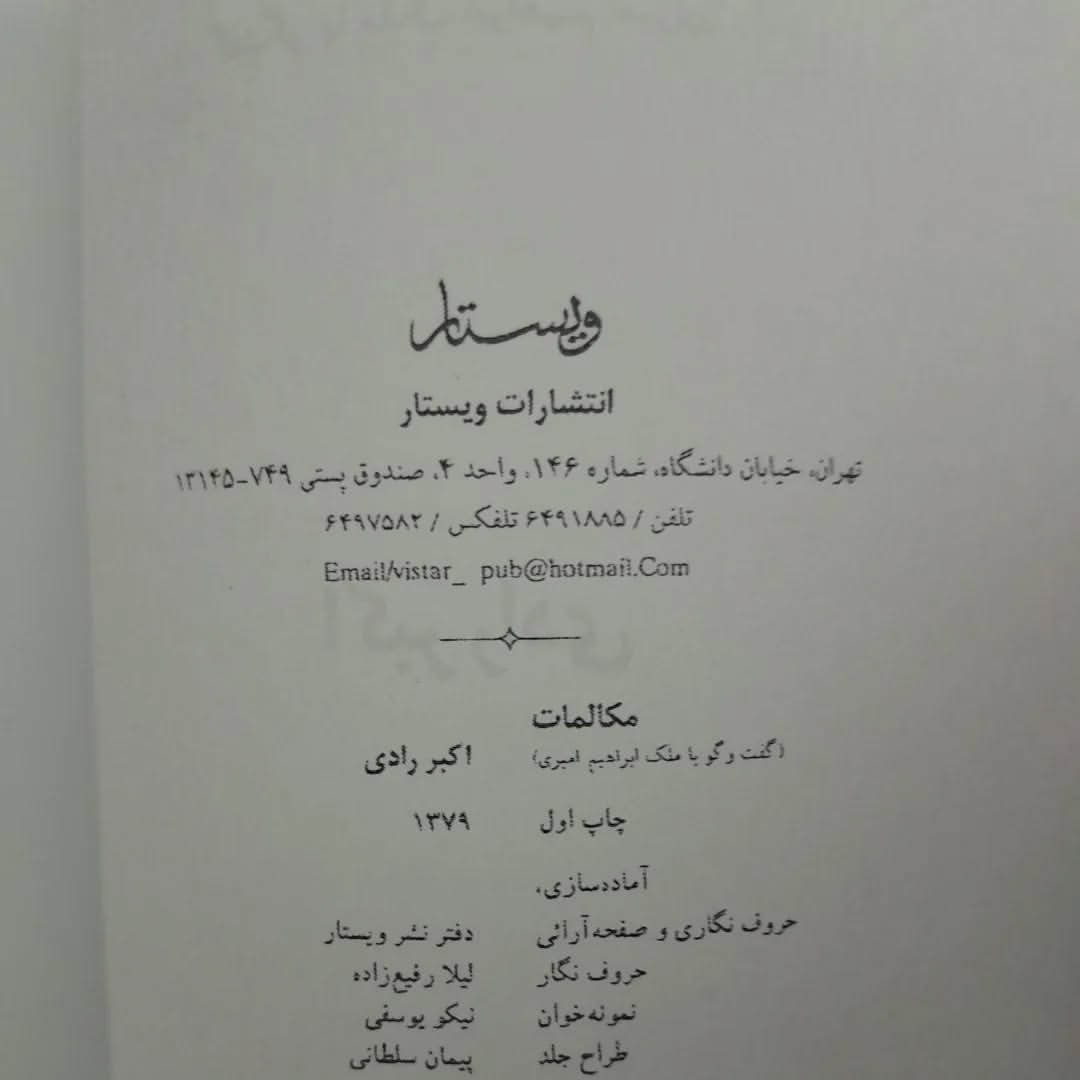 ویستار
انتشارات ویستار
تهران، خیابان دانشگاه، شماره ۱۴۶، واحد ۴، صندوق پستی ۷۴۹-۱۳۱۴۵
تلفن / ۶۴۹۱۸۸۵ تلفکس / ۶۴۹۷۵۸۲
Email/vistar_ pub@hotmail.Com
مکالمات
(گفت وگو با ملک ابراهیم امیری) اکبر رادی
چاپ اول ۱۳۷۹
آماده‌سازی،
حروف نگاری و صفحه‌آرائی دفتر نشر ویستار
حروف نگار لیلا رفیع‌زاده
نمونه‌خوان نیکو یوسفی
طراح جلد پیمان سلطانی